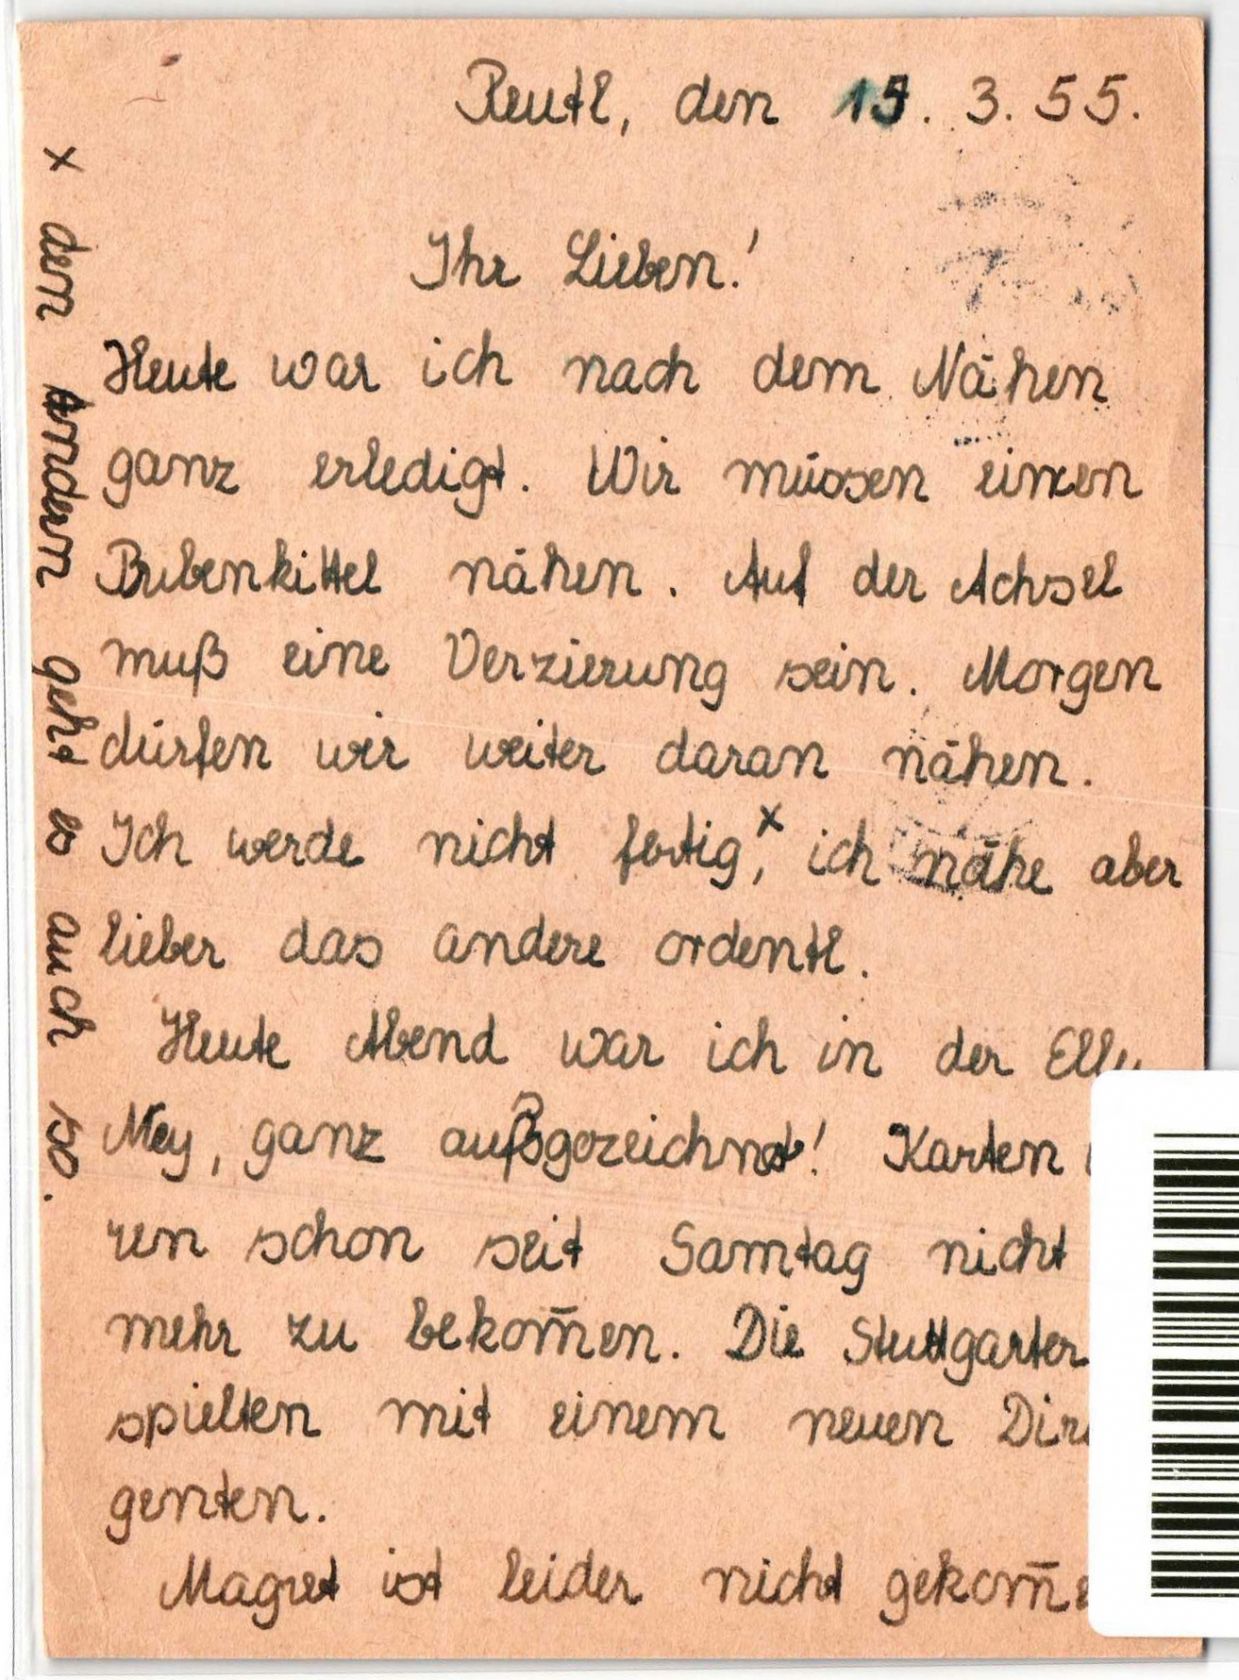 Reutl, den 15. 3. 55.
Ihr Lieben!
Heute war ich nach dem Nähen
ganz erledigt. Wir müssen einen
Bubenkittel nähen. Auf der Achsel
muß eine Verzierung sein. Morgen
dürfen wir weiter daran nähen.
Ich werde nicht fertig,ˣ ich nähe aber
lieber das andere ordentl.
Heute Abend war ich in der Elly
Ney, ganz außgezeichnet! Karten
ren schon seit Samtag nicht
mehr zu bekom̅en. Die Stuttgarter
spielten mit einem neuen Diri
genten.
Magret ist leider nicht gekom̅e
x dem Andern geht es auch so.